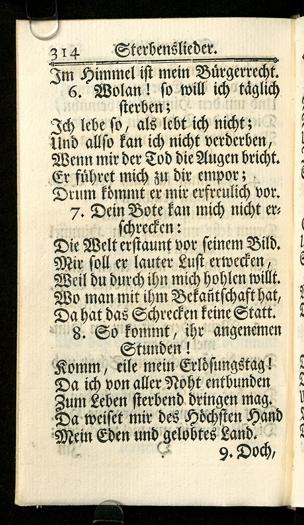 314 Sterbenslieder.
Im Himmel ist mein Bürgerrecht.
6. Wolan! so will ich täglich
sterben;
Ich lebe so, als lebt ich nicht;
Und allso kan ich nicht verderben,
Wenn mir der Tod die Augen bricht.
Er führet mich zu dir empor;
Drum kömmt er mir erfreulich vor.
7. Dein Bote kan mich nicht er-
schrecken:
Die Welt erstaunt vor seinem Bild.
Mir soll er lauter Lust erwecken,
Weil du durch ihn mich hohlen willt.
Wo man mit ihm Bekañtschaft hat,
Da hat das Schrecken keine Statt.
8. So kommt, ihr angenemen
Stunden!
Komm, eile mein Erlösungstag!
Da ich von aller Noht entbunden
Zum Leben sterbend dringen mag.
Da weiset mir des Höchsten Hand
Mein Eden und gelobtes Land.
9. Doch,